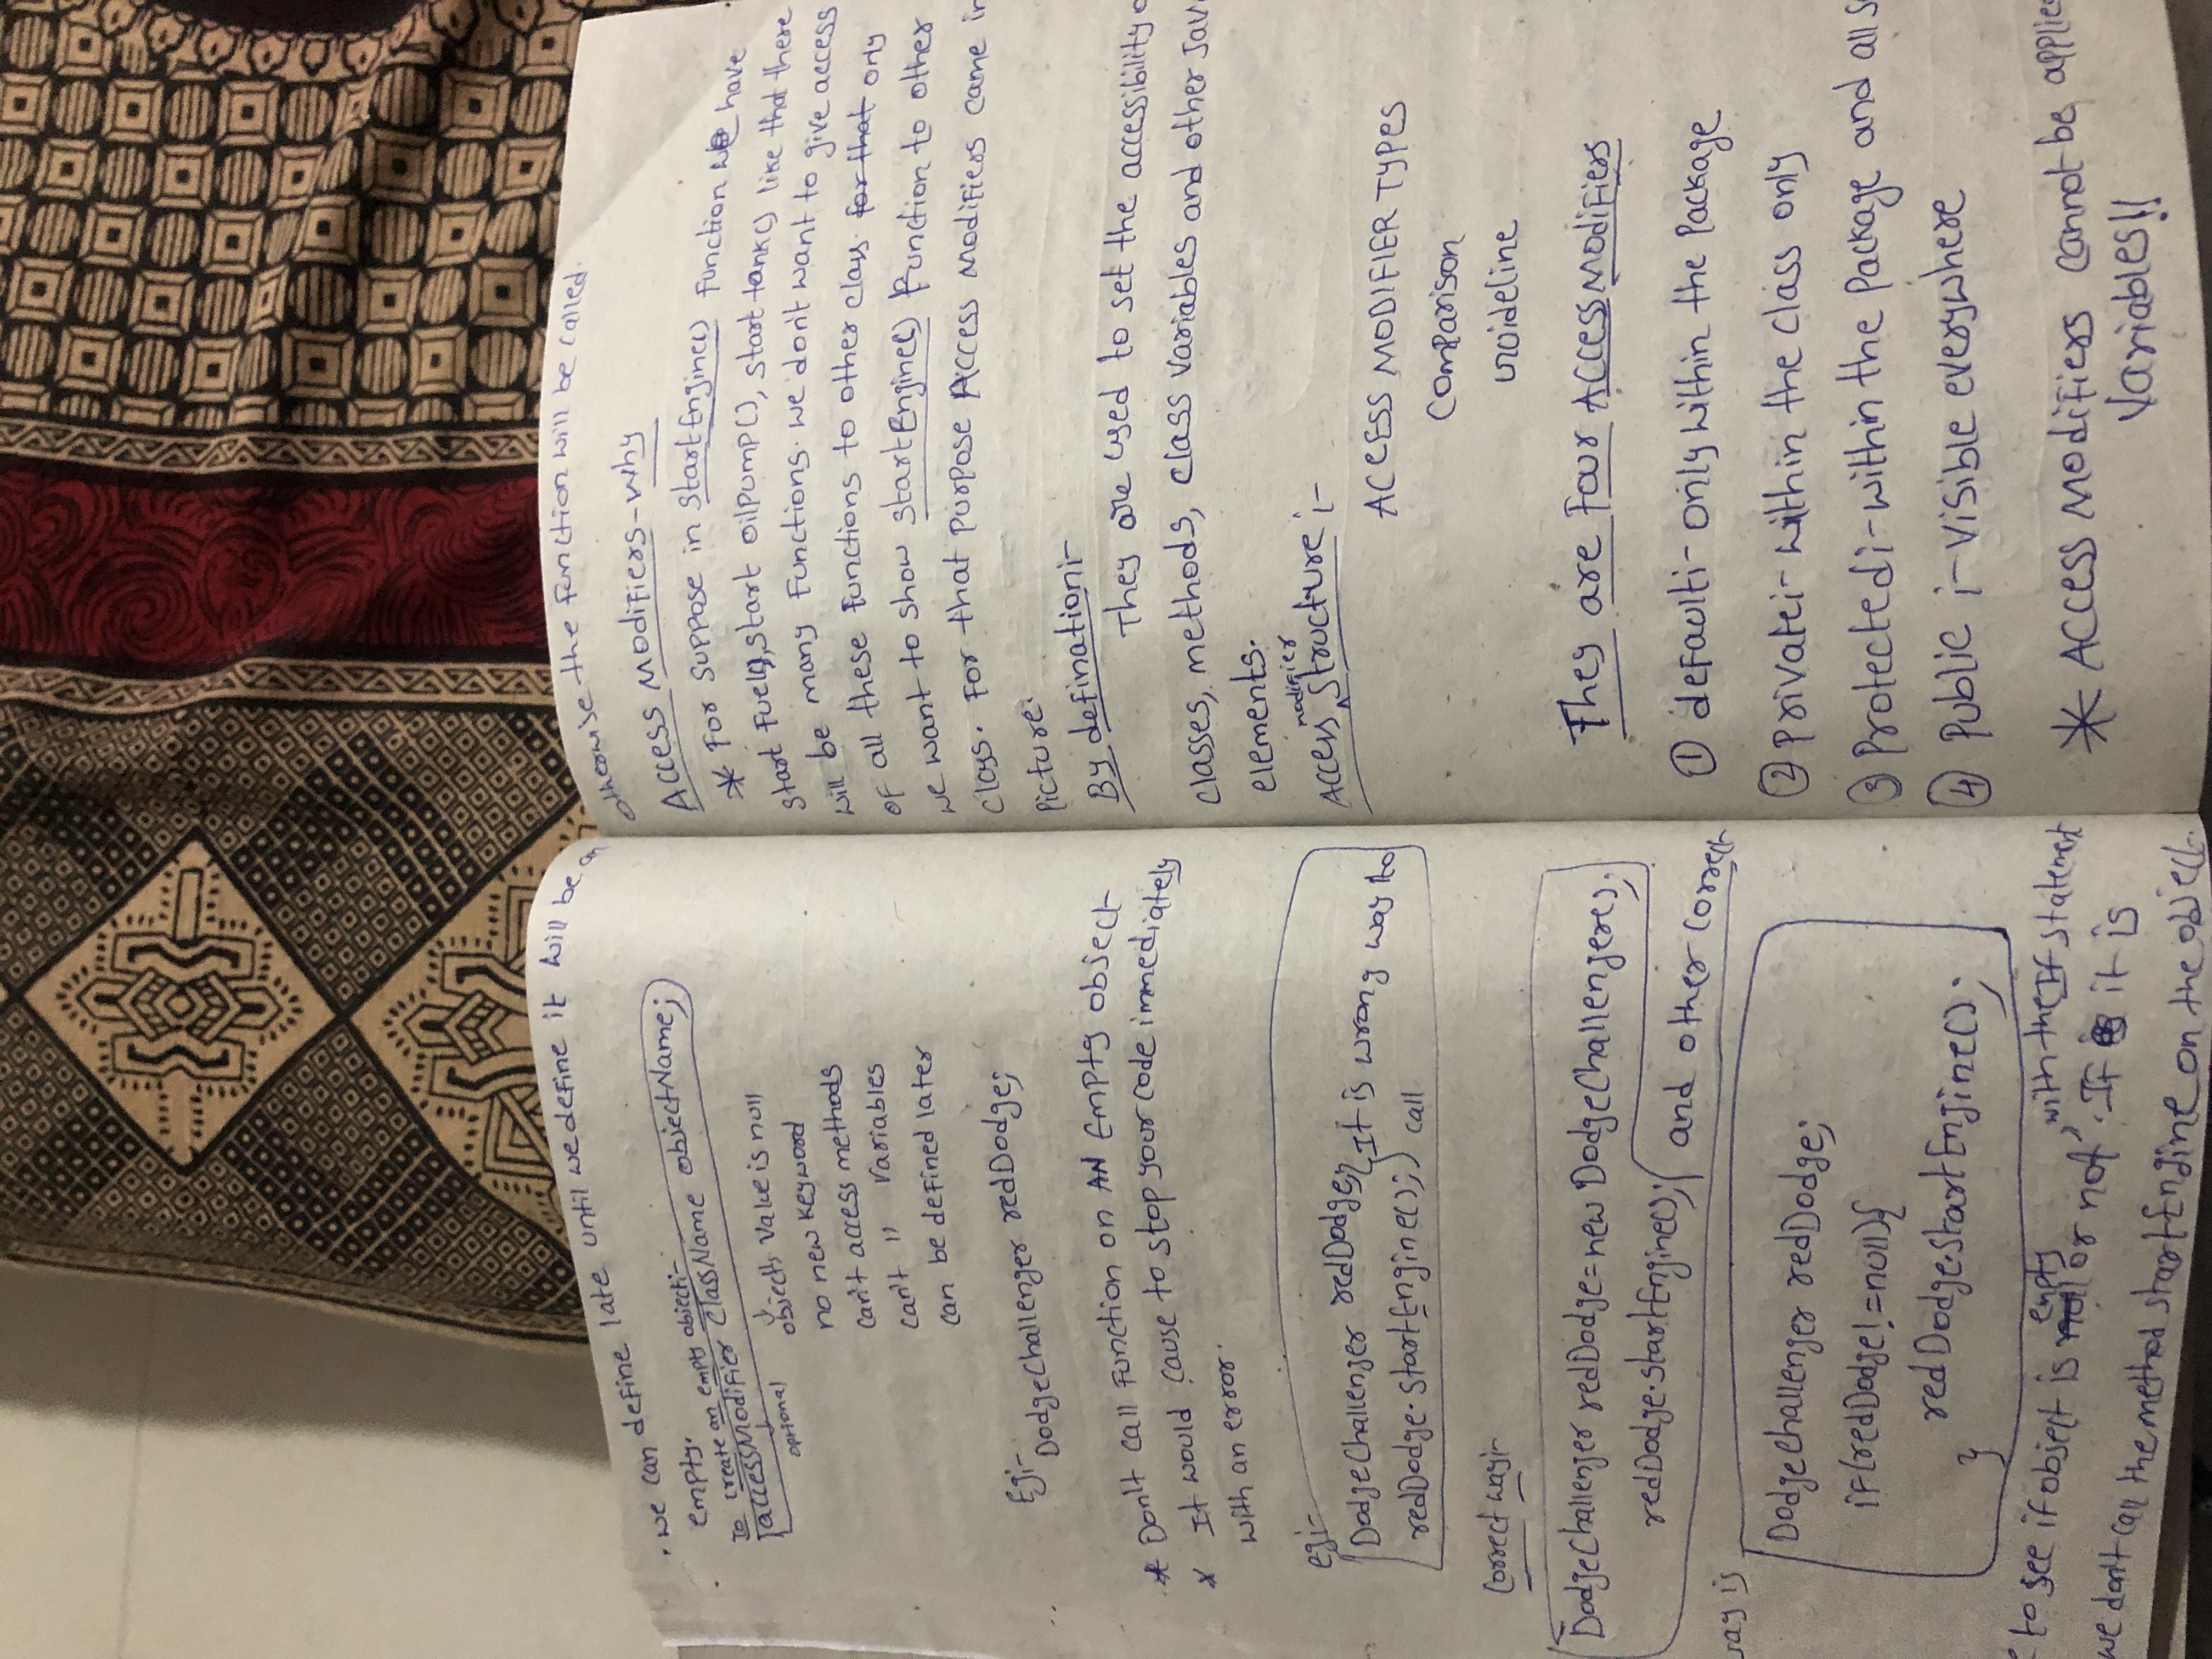 . we can define late until we define it will be an
empty.
To create an empty object:-
accessModifier ClassName objectName;
optional
object's value is null
no new keyword
can't access methods
can't " variables
can be defined later
Eg:-
DodgeChallenger redDodge;
* Don't call function on AN Empty object
* It would cause to stop your code immediately
with an error.
eg:-
DodgeChallenger redDodge; } It is wrong way to
redDodge.StartEngine(); } call
Correct way:-
DodgeChallenger redDodge=new DodgeChallenger();
redDodge.startEngine(); and other correct
way is
DodgeChallenger redDodge;
if(redDodge!=null){
redDodge.startEngine();
}
to see if object is empty or not, with the If statement
. If it is
we don't call the method startEngine on the object.
otherwise the function will be called.
Access Modifiers-Why
* For suppose in StartEngine() function we have
start Fuel(), start oilPump(), start tank() like that there
will be many Functions. we don't want to give access
of all these functions to other class. for that only
we want to show startEngine() Function to other
class. For that purpose Access Modifiers came in
picture.
By defination:-
They are used to set the accessibility
classes, methods, class variables and other Jav
elements.
Access modifier Structure :-
ACCESS MODIFIER TYPES
Comparison
Guideline
They are Four Access Modifiers
① default:- only within the Package
② Private:- within the class only
③ Protected:- within the package and all s
④ Public :- Visible everywhere
* Access Modifiers cannot be applie
Variables!!